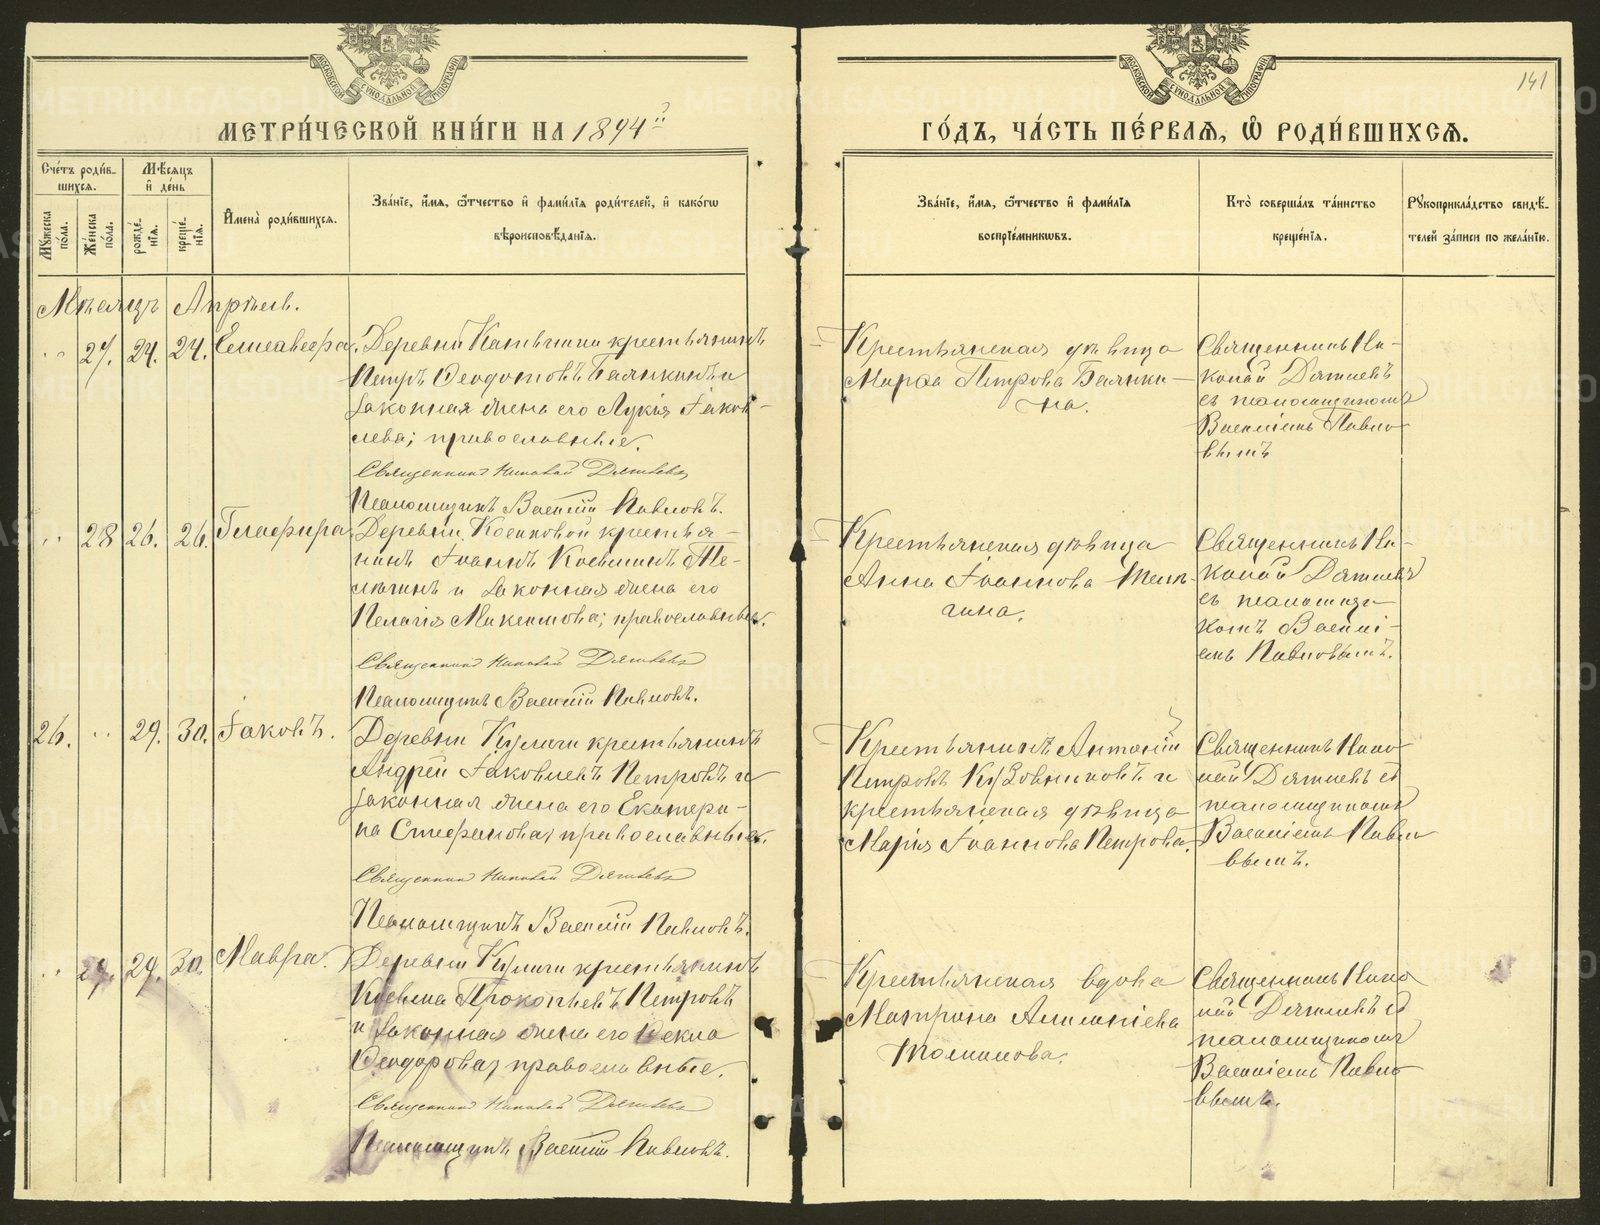 141
МЕТРИ́ЧЕСКОЙ КНИ́ГИ НА 1894й
ГО́ДЪ, ЧА́СТЬ ПЕ́РВАѦ, Ѡ҆ РОДИ́ВШИХСѦ.
Сче́тъ роди́в-
шихсѧ.
Мѣ́сяцъ
и҆ де́нь
Мꙋ́жеска по́ла.
Же́нска по́ла.
рожде́-
нїѧ.
креще́-
нїѧ.
И҆мена̀ роди́вшихсѧ.
Зва́нїе, и҆́мѧ, ѻ҆́тчество и҆ фами́лїѧ роди́телей, и҆ како́гѡ
вѣроисповѣ́данїѧ.
Зва́нїе, и҆́мѧ, ѻ҆́тчество и҆ фами́лїѧ
воспрїе́мникѡвъ.
Кто̀ соверша́лъ та́инство
креще́нїѧ.
Рꙋкоприкла́дство свидѣ́-
телей за́писи по жела́нїю.
Мѣсяцъ Апрѣль.
27. 24. 24. Елисавефа.
Деревни крестьянинъ
Петръ Ѳеодотовъ Балнкинъ и
законная жена его Лукія Іаков-
лева; православные.
Священникъ Николай Дягилевъ
Псаломщикъ Василій Павловъ.
Крестьянская дѣвица
Марѳа Петрова Балнки-
на.
Священникъ Ни-
колай Дягилевъ
съ псаломщикомъ
Василіемъ Павло-
вымъ
28 26. 26. Глафира
Деревни Косиковой крестья-
нинъ Іоаннъ Косминъ Те-
лѣгинъ и законная жена его
Пелагія Максимова; православные.
Священникъ Николай Дягилевъ
Псаломщикъ Василій Павловъ.
Крестьянская дѣвица
Анна Іоаннова Телѣ-
гина.
Священникъ Ни-
колай Дягилевъ
съ псаломщи-
комъ Василі-
емъ Павловымъ.
26. 29. 30. Іаковъ.
Деревни Кулиги крестьянинъ
Андрей Іаковлевъ Петровъ и
законная жена его Екатери-
на Стефанова; православные.
Священникъ Николай Дягилевъ
Псаломщикъ Василій Павловъ.
Крестьянинъ Антоній
Петровъ Кузовниковъ и
крестьянская дѣвица
Марія Іоаннова Петрова.
Священникъ Нико-
лай Дягилевъ съ
псаломщикомъ
Василіемъ Павло-
вымъ.
29. 29. 30. Мавра.
Деревни Кулиги крестьянинъ
Косьма Прокопьевъ Петровъ
и законная жена его Ѳекла
Ѳеодорова; православные.
Священникъ Николай Дягилевъ
Псаломщикъ Василій Павловъ.
Крестьянская вдова
Матрона
Толмачова.
Священникъ Нико-
лай Дягилевъ съ
псаломщикомъ
Василіемъ Павло-
вымъ.